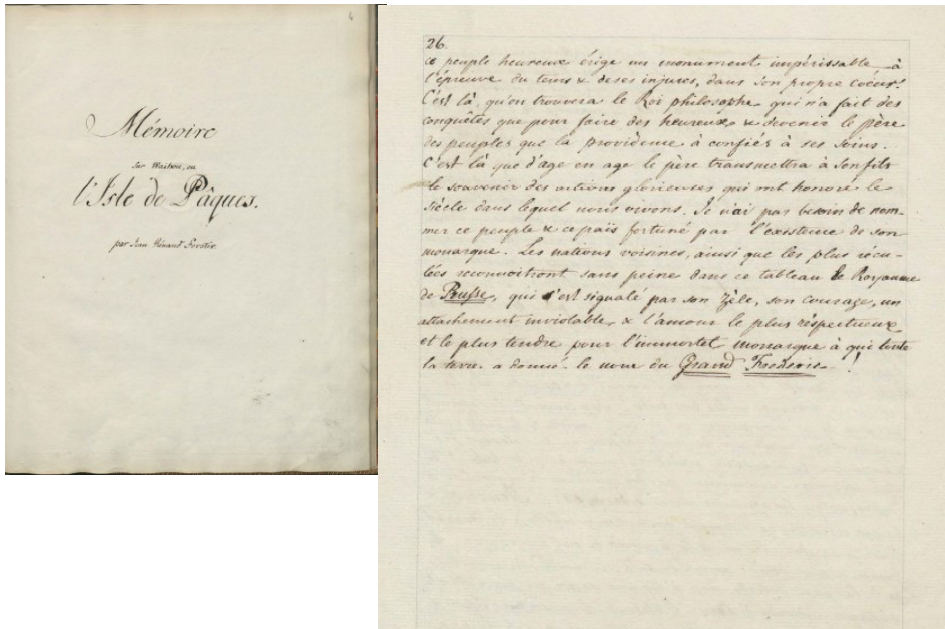 6
Mémoire
sur Waihou, ou
l'Isle de Pâques.
par Jean Rénaud Forster
26.
ce peuple heureux érige un monument impérissable à
l'épreuve du tems & de ses injures, dans son propre coeur.
C'est là, qu'on trouvera le Roi philosophe qui n'a fait des
conquêtes que pour faire des heureux & devenir le père
des peuples que la providence à confiés à ses soins.
C'est là que d'age en age le père transmettra à son fils
le souvenir des actions glorieuses qui ont honoré le
siècle dans lequel nous vivons. Je n'ai pas besoin de nom-
mer ce peuple & ce païs fortuné par l'existence de son
monarque. Les nations voisines, ainsi que les plus récu-
lées reconnoitront sans peine dans ce tableau le Royaume
de Prusse, qui s'est signalé par son zèle, son courage, un
attachement inviolable & l'amour le plus réspectueux
et le plus tendre pour l'immortel monarque à qui toute
la terre a donné le nom du Grand Frederic !